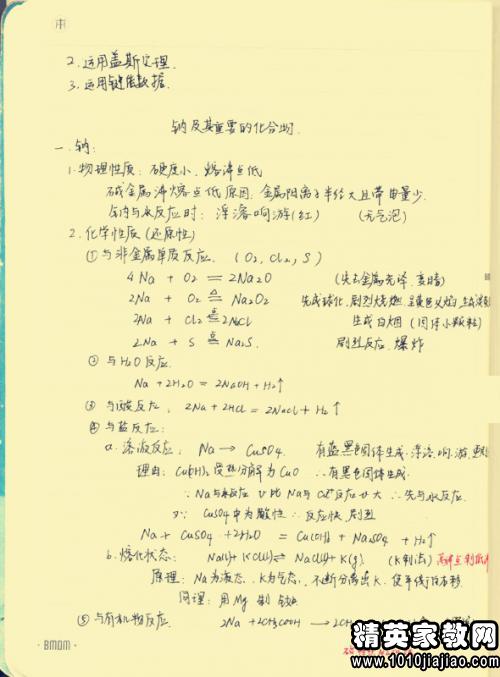 2. 运用盖斯定理.
3. 运用键能数据.
钠及其重要的化合物.
一. 钠:
1. 物理性质: 硬度小、熔沸点低
碱金属沸熔点低原因: 金属阳离子半径大且带电量少.
钠与水反应时: 浮溶响游(红) (无气泡)
2. 化学性质 (还原性)
① 与非金属单质反应. (O₂, Cl₂, S)
4Na + O₂ == 2Na₂O (失去金属光泽, 变暗)
2Na + O₂ ≜ Na₂O₂ 先成球化, 剧烈燃烧, 呈黄色火焰, 生成淡
2Na + Cl₂ 点= 2NaCl 生成白烟 (固体小颗粒)
2Na + S 点= Na₂S. 剧烈反应, 爆炸
② 与H₂O反应.
Na + 2H₂O = 2NaOH + H₂↑
③ 与酸反应: 2Na + 2HCl = 2NaCl + H₂↑
④ 与盐反应:
a. 溶液反应: Na → CuSO₄. 有蓝黑色固体生成. 浮溶.响.游.
理由: Cu(OH)₂受热分解为CuO ∴有黑色固体生成.
∵Na与水反应 v 比 Na与Cu²⁺反应 v 大 ∴先与水反应.
又∵ CuSO₄中为酸性 ∴反应快, 剧烈
Na + CuSO₄ + 2H₂O = Cu(OH)₂ + Na₂SO₄ + H₂↑
b. 熔化状态: Na(l) + KCl(l) ⇌ NaCl(l) + K(g). (K制法)
原理: Na为液态, K为气态, 不断分离出K, 使平衡右移
同理: 用Mg 制
⑤ 与有机物反应. 2Na + 2CH₃COOH → 2CH
BMQM
精英家教网
www.1010jiajiao.com